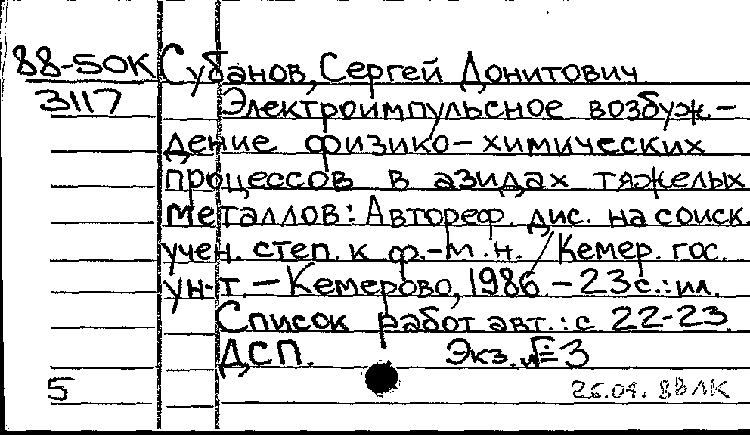 88-50К Субанов, Сергей Донитович
3117 Электроимпульсное возбуж.-
дение физико-химических
процессов в азидах тяжелых
металлов: Автореф. дис. на соиск.
учен. степ. к ф.-м.н. / Кемер. гос.
ун-т. - Кемерово, 1986 - 23с.: ил.
Список работ авт.: с 22-23
ДСП. Экз. № 3
5 26.04. 88 ЛК